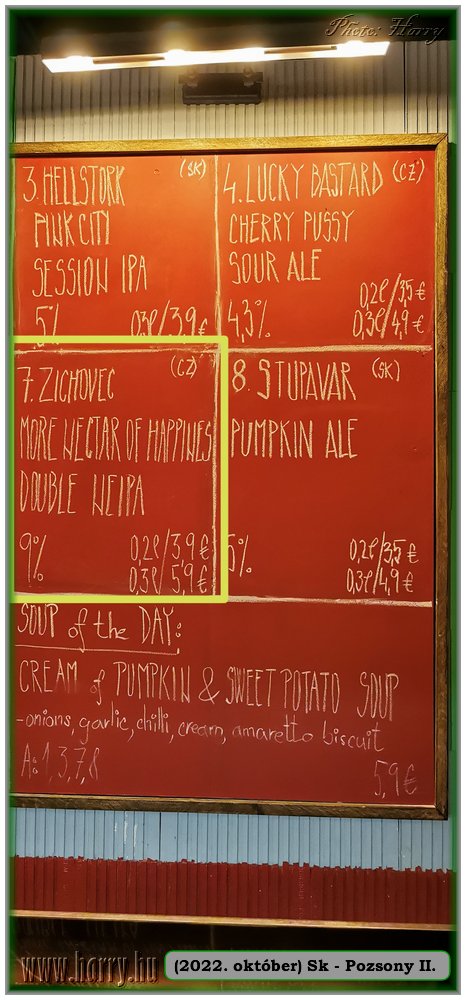 Photo: Horry
3. HELLSTORK (SK)
PINK CITY
SESSION IPA
5% 0,3l/3,9€
4. LUCKY BASTARD (CZ)
CHERRY PUSSY
SOUR ALE
0,2l/3,5€
4,3% 0,3l/4,9€
7. ZICHOVEC (CZ)
MORE NECTAR OF HAPPINES
DOUBLE NEIPA
9% 0,2l/3,9€
0,3l/5,9€
8. STUPAVAR (SK)
PUMPKIN ALE
5% 0,2l/3,5€
0,3l/4,9€
SOUP of the DAY:
CREAM of PUMPKIN & SWEET POTATO SOUP
-onions, garlic, chilli, cream, amaretto biscuit
A: 1,3,7,8 5,9€
www.horry.hu
(2022. október) Sk - Pozsony II.